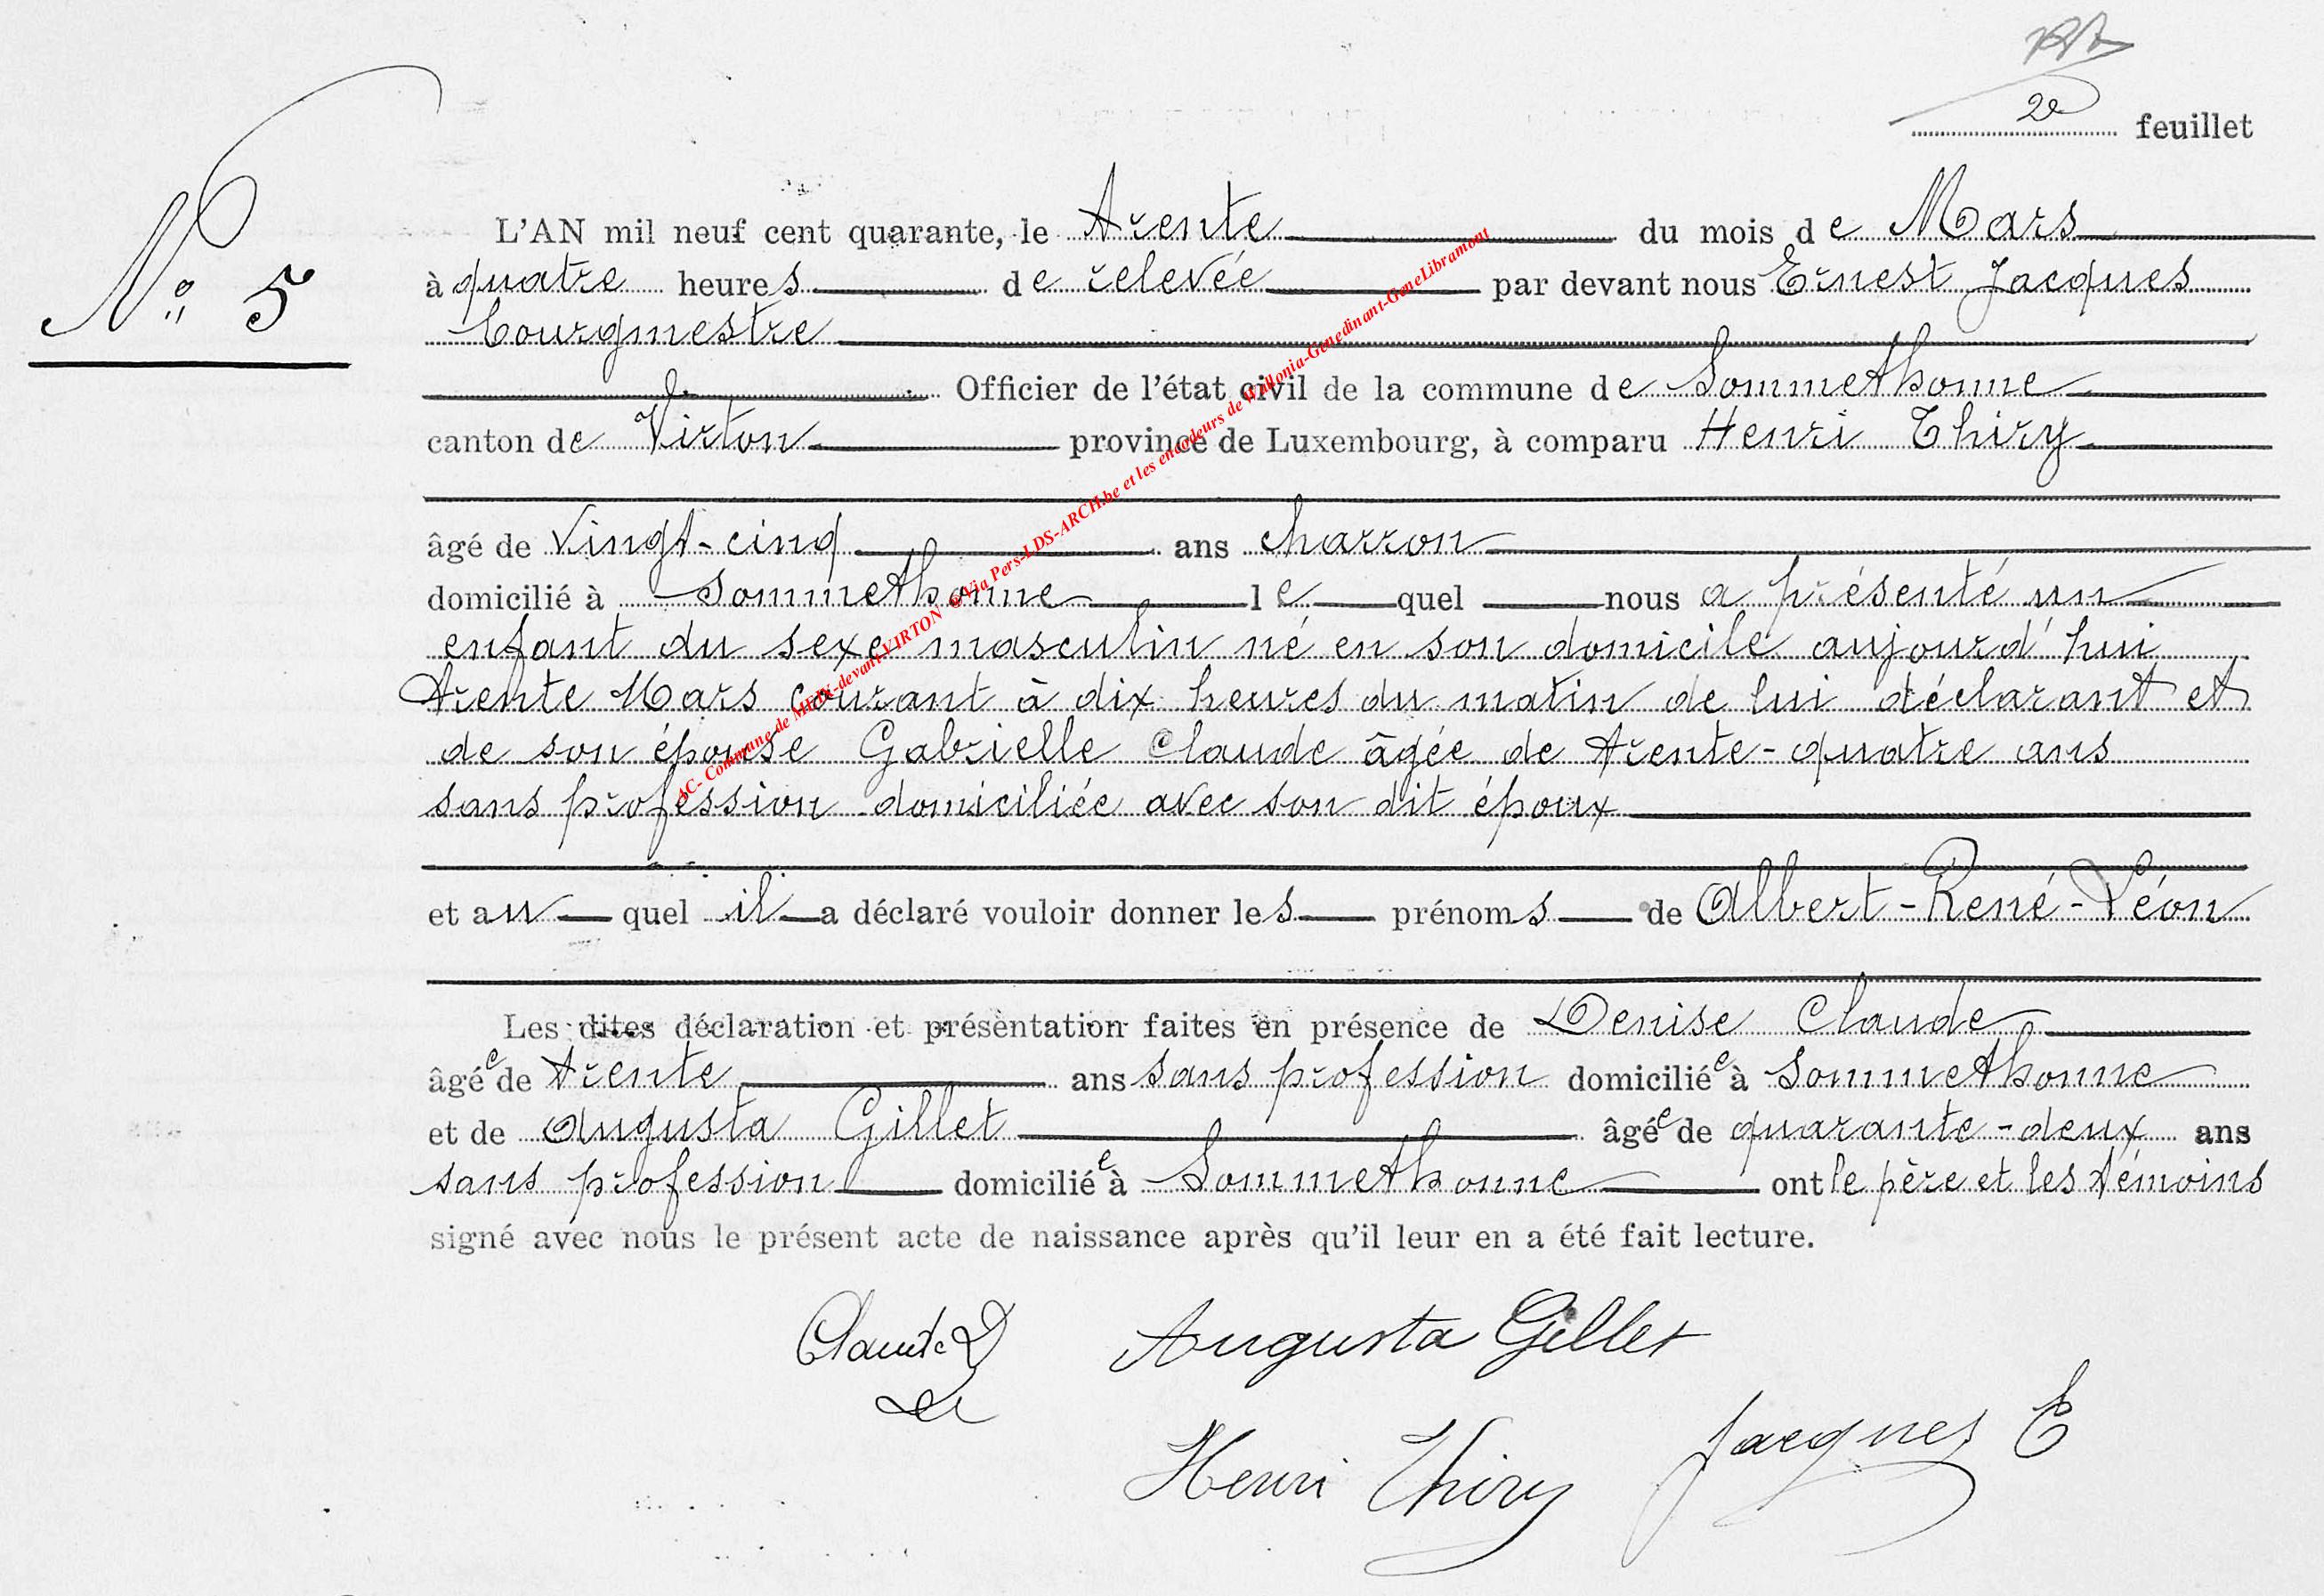 2e feuillet
Nº 5
L'AN mil neuf cent quarante, le trente du mois de Mars
à quatre heures de relevée par devant nous Ernest Jacques
bourgmestre
Officier de l'état civil de la commune de Sommethonne
canton de Virton province de Luxembourg, à comparu Henri Thiry
âgé de vingt-cinq ans charron
domicilié à Sommethonne lequel nous a présenté un
enfant du sexe masculin né en son domicile aujourd'hui
trente Mars courant à dix heures du matin de lui déclarant et
de son épouse Gabrielle Claude âgée de trente-quatre ans
sans profession domiciliée avec son dit époux
et au quel il a déclaré vouloir donner les prénoms de Albert-René-Léon
Les dites déclaration et présentation faites en présence de Denise Claude
âgée de trente ans sans profession domiciliée à Sommethonne
et de Augusta Gillet âgée de quarante-deux ans
sans profession domiciliée à Sommethonne ont le père et les témoins
signé avec nous le présent acte de naissance après qu'il leur en a été fait lecture.
Claude D Augusta Gillet
Henri Thiry Jacques E
SC- Commune de MEIX-devant-VIRTON @Via Pers-LDS-ARCH.be et les encodeurs de Wallonia-Genedinant-GeneLibramont